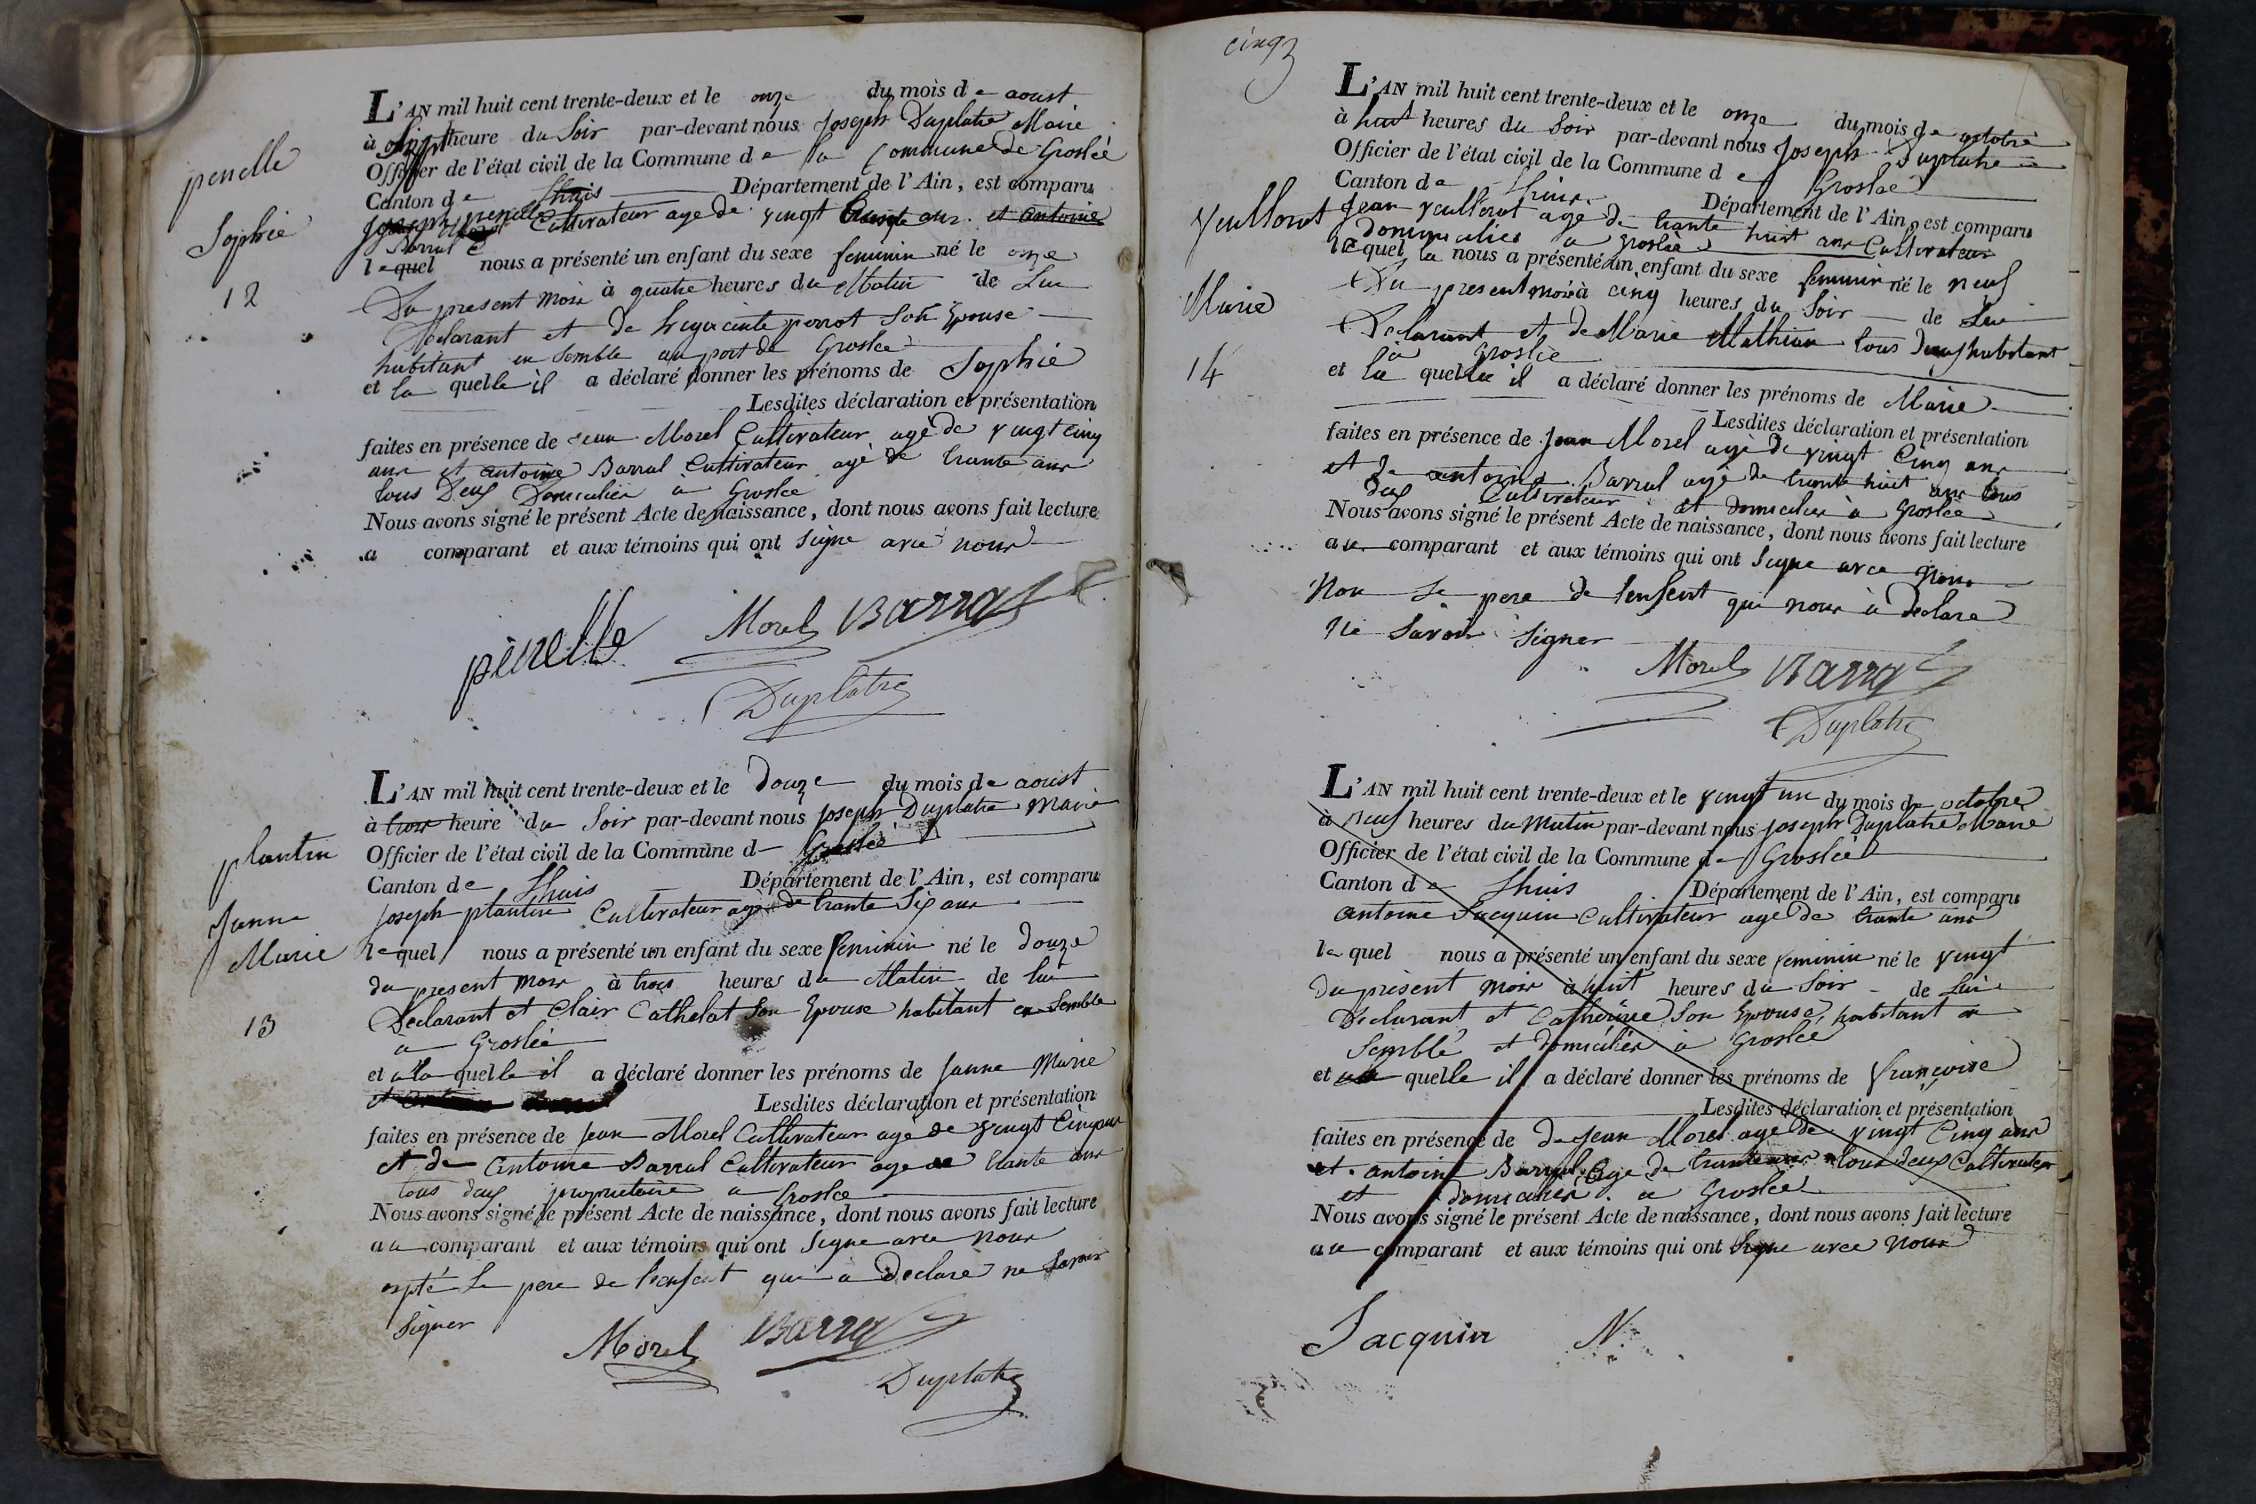 penelle
Sophie
12
L'AN mil huit cent trente-deux et le onze du mois de aoust
à heure du Soir par-devant nous Joseph Duplatre Maire
Officier de l'état civil de la Commune de la Commune de Groslée
Canton de Lhuis Département de l'Ain, est comparu
penelle Cultivateur age de vingt ans et antoine
Barral
lequel nous a présenté un enfant du sexe feminin né le onze
Du present mois à quatre heures du Matin de Lui
Declarant et de hiyacinte perrot Son Epouse
habitant en Semble au port de Groslée
et la quelle il a déclaré donner les prénoms de Sophie
Lesdites déclaration et présentation
faites en présence de Jean Morel Cultivateur agé de vingt Cinq
ans et antoine Barral Cultivateur agé de trante ans
tous Deux Domicilies a Groslee
Nous avons signé le présent Acte de naissance, dont nous avons fait lecture
a comparant et aux témoins qui ont Signe avec nous
penelle Morel Barral
Duplatre
plantin
Janne
Marie
13
L'AN mil huit cent trente-deux et le Douze du mois de aoust
à trois heure du Soir par-devant nous Joseph Duplatre Maire
Officier de l'état civil de la Commune d Groslée
Canton de Lhuis Département de l'Ain, est comparu
Joseph plantin Cultivateur agé de trante Six ans
lequel nous a présenté un enfant du sexe feminin né le douze
du present mois à trois heures du Matin de lui
Declarant et Clair Cathelat Son Epouse habitant en Semble
a Groslée
et a la quelle il a déclaré donner les prénoms de Janne Marie
Lesdites déclaration et présentation
faites en présence de Jean Morel Cultivateur agé de vingt Cinq ans
et de antoine Barral Cultivateur age de trante ans
tous deux proprietaire a Groslee
Nous avons signé le présent Acte de naissance, dont nous avons fait lecture
au comparant et aux témoins qui ont Signe avec nous
expté Le pere de lenfant qui a Declaré ne Savoir
Signer
Morel Barral
Duplatre
cinq
Veullerot
Marie
14
L'AN mil huit cent trente-deux et le onze du mois de octobre
à huit heures du Soir par-devant nous Joseph Duplatre
Officier de l'état civil de la Commune de Groslée
Canton de Lhuis Département de l'Ain, est comparu
Jean veullerot agé de trante huit ans Cultivateur
domicilies a groslée
lequel nous a présenté un enfant du sexe feminin né le neuf
Du present mois à cinq heures du Soir de Lui
Declarant et de Marie Mathian tous Deux habitant
à Groslée
et la quelle il a déclaré donner les prénoms de Marie
Lesdites déclaration et présentation
faites en présence de Jean Morel agé de vingt Cinq ans
et de antoine Barral agé de trante huit ans tous
deux Cultivateur et domicilies à Groslée
Nous avons signé le présent Acte de naissance, dont nous avons fait lecture
au comparant et aux témoins qui ont Signe avec nous
Non Le pere de lenfent qui nous à Declaré
Ne Savoir Signer
Morel Barral
Duplatre
L'AN mil huit cent trente-deux et le vingt un du mois de octobre
à neuf heures du Matin par-devant nous Joseph Duplatre Maire
Officier de l'état civil de la Commune de Groslée
Canton de Lhuis Département de l'Ain, est comparu
antoine Jacquin Cultivateur age de trante ans
lequel nous a présenté un enfant du sexe feminin né le vingt
Du présent mois à huit heures du Soir de Lui
Déclarant et Cathérine Son Epouse, habitant en
Semble et domicilies à Groslée
et quelle il a déclaré donner les prénoms de françoise
Lesdites déclaration et présentation
faites en présence de de Jean Morel age de vingt Cinq ans
et antoine Barral age de trante tous deux Cultivateur
et domicilies a Groslée
Nous avons signé le présent Acte de naissance, dont nous avons fait lecture
au comparant et aux témoins qui ont Signe avec nous
Jacquin N.